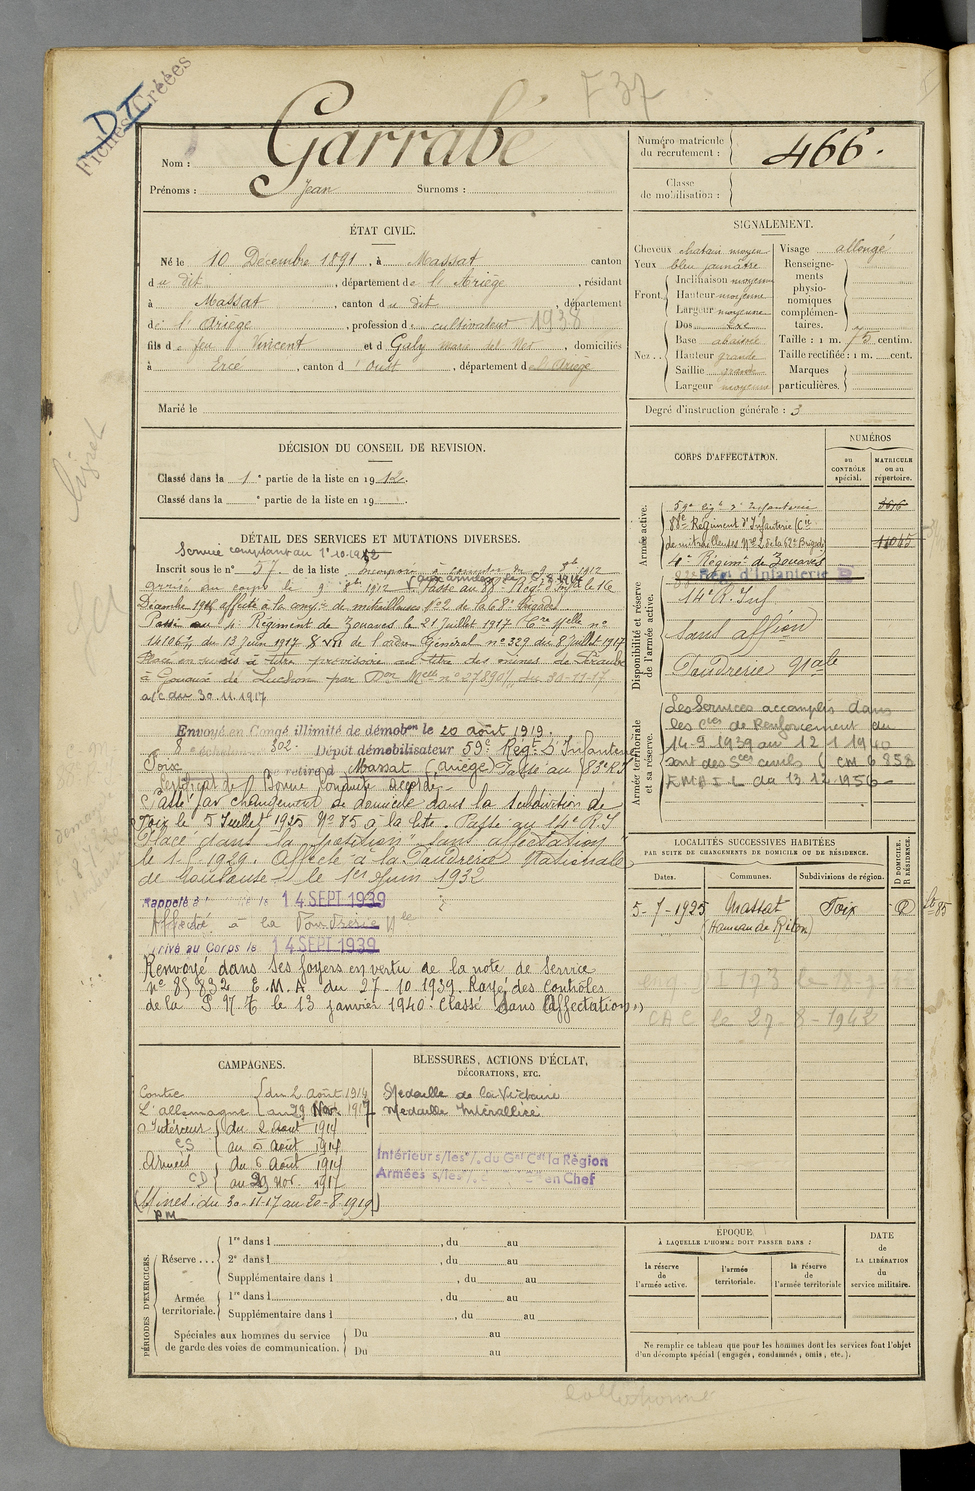 F 37
D I
Fiches Créées
Nom : Garrabé
Prénoms : Jean Surnoms :
Numéro matricule du recrutement : 466.
Classe de mobilisation :
ÉTAT CIVIL.
Né le 10 Décembre 1891, à Massat canton
du dit, département de l'Ariège, résidant
à Massat, canton du dit, département
de l'Ariège, profession de cultivateur 1938
fils de feu Vincent et d Galy marie del Ner, domiciliés
à Ercé, canton d'Oust, département de l'Ariège
Marié le
SIGNALEMENT.
Cheveux chatain moyen
Yeux bleu jaunâtre
Front. Inclinaison moyenne
Hauteur moyenne
Largeur moyenne
Nez. Dos
Base abaissée
Hauteur grande
Saillie grande
Largeur moyenne
Visage allongé
Renseignements physionomiques complémentaires.
Taille : 1 m. 75 centim.
Taille rectifiée : 1 m. cent.
Marques particulières.
Degré d'instruction générale : 3
DÉCISION DU CONSEIL DE REVISION.
Classé dans la 1e partie de la liste en 1912.
Classé dans la e partie de la liste en 19 .
DÉTAIL DES SERVICES ET MUTATIONS DIVERSES.
Service comptant du 1er 10.1912
Inscrit sous le n° 57. de la liste Incorporé à compter du 9 8bre 1912
arrivé au corps le 9 8bre 1912 Passé au 88e Régt d'Infie le 16
aux armées le 6 8 1914
Décembre 1914 affecté à la compie de mitrailleuses n° 2 de la 68e Brigade
Passé au 4e Régiment de Zouaves le 21 Juillet 1917 (Cre Melle n°
14106 7/1 du 13 Juin 1917 & VII de l'ordre Général n° 329 du 8 Juillet 1917
Placé en sursis à titre provisoire au titre des mines de
à Gouaux de Luchon par Don Melle n° 27890 du 30-11-17
a/c du 30.11.1917
Envoyé en Congé illimité de démobon le 20 août 1919.
8e échelon 302. Dépôt démobilisateur 59e Régt D'Infanterie
Foix se retire à Massat (Ariège) Passé au 83e RI
Certificat de Bonne Conduite accordé
Passé par changement de domicile dans la subdivision de
Foix le 5 Juillet 1925 N° 85 à la liste. Passé au 14e R.I
Placé dans la position "sans affectation"
le 1.5.1929. Affecté à la Poudrerie Nationale
de Toulouse le 1er Juin 1932
Rappelé à le 14 SEPT 1939
Affecté à la Poudrerie Nle
Arrivé au Corps le 14 SEPT 1939
Renvoyé dans ses foyers en vertu de la note de Service
n° 85 832 E.M.A. du 27-10-1939. Rayé des contrôles
de la P.N.T. le 13 janvier 1940. Classé "Sans Affectation"
CORPS D'AFFECTATION.
NUMÉROS
au CONTRÔLE spécial.
MATRICULE ou au répertoire.
Armée active.
59e Régt d'Infanterie
88e Régiment d'Infanterie (Cie
de mitrailleuses N° 2 de la 68e Brigade)
4e Régimt de Zouaves
Disponibilité et réserve de l'armée active.
83e Rég. d'Infanterie
14e R. Inf
Sans affion
Poudrerie Nale
Armée territoriale et sa réserve.
Les Services accomplis dans
les Cies de Renforcement du
14-9 1939 au 12 1 1940
sont des Sces civils (CM 6 858
EMA I L du 13 12 1956
LOCALITÉS SUCCESSIVES HABITÉES
PAR SUITE DE CHANGEMENTS DE DOMICILE OU DE RÉSIDENCE.
D DOMICILE. R RÉSIDENCE.
Dates. Communes. Subdivisions de région.
5-7-1925 Massat Foix D
(Hameau de Riton)
CAC le 27-8-1942
CAMPAGNES.
Contre du 2 août 1914
L'allemagne au 29 Nov. 1917
Intérieur du 2 Aout 1914
CS au 5 Août 1914
Armées du 6 Août 1914
CD au 29 Nov. 1917
(Mines. du 30-11-17 au 20-8-1919)
P.M
BLESSURES, ACTIONS D'ÉCLAT,
DÉCORATIONS, ETC.
Médaille de la Victoire
Médaille Interalliée
Intérieur s/les o/. du Gal Cdt la Région
Armées s/les o/. en Chef
PÉRIODES D'EXERCICES.
Réserve ... 1re dans l , du au
2e dans l , du au
Supplémentaire dans l , du au
Armée territoriale. 1re dans l , du au
Supplémentaire dans l , du au
Spéciales aux hommes du service de garde des voies de communication. Du au
Du au
ÉPOQUE
À LAQUELLE L'HOMME DOIT PASSER DANS :
la réserve de l'armée active.
l'armée territoriale.
la réserve de l'armée territoriale
DATE de LA LIBÉRATION du service militaire.
Ne remplir ce tableau que pour les hommes dont les services font l'objet
d'un décompte spécial (engagés, condamnés, omis, etc.).
Collectionné